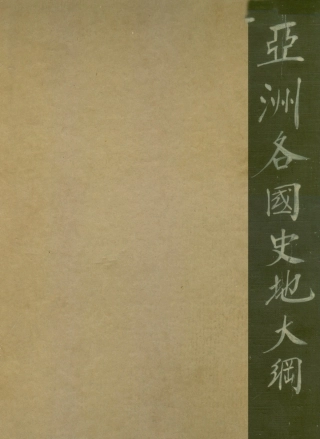 亞洲各國史地大綱